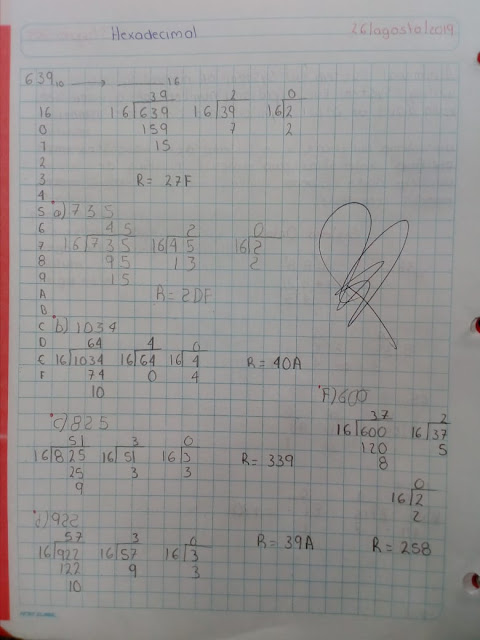 Hexadecimal
26/agosto/2019
639₁₀ → ______₁₆
16
0
1
2
3
4
5
6
7
8
9
A
B
C
D
E
F
39
16|639
159
15
2
16|39
7
0
16|2
2
R= 27F
a) 735
45
16|735
95
15
2
16|45
13
0
16|2
2
R= 2DF
b) 1034
64
16|1034
74
10
4
16|64
0
0
16|4
4
R= 40A
c) 825
51
16|825
25
9
3
16|51
3
0
16|3
3
R= 339
d) 922
57
16|922
122
10
3
16|57
9
0
16|3
3
R= 39A
F) 600
37
16|600
120
8
2
16|37
5
0
16|2
2
R= 258